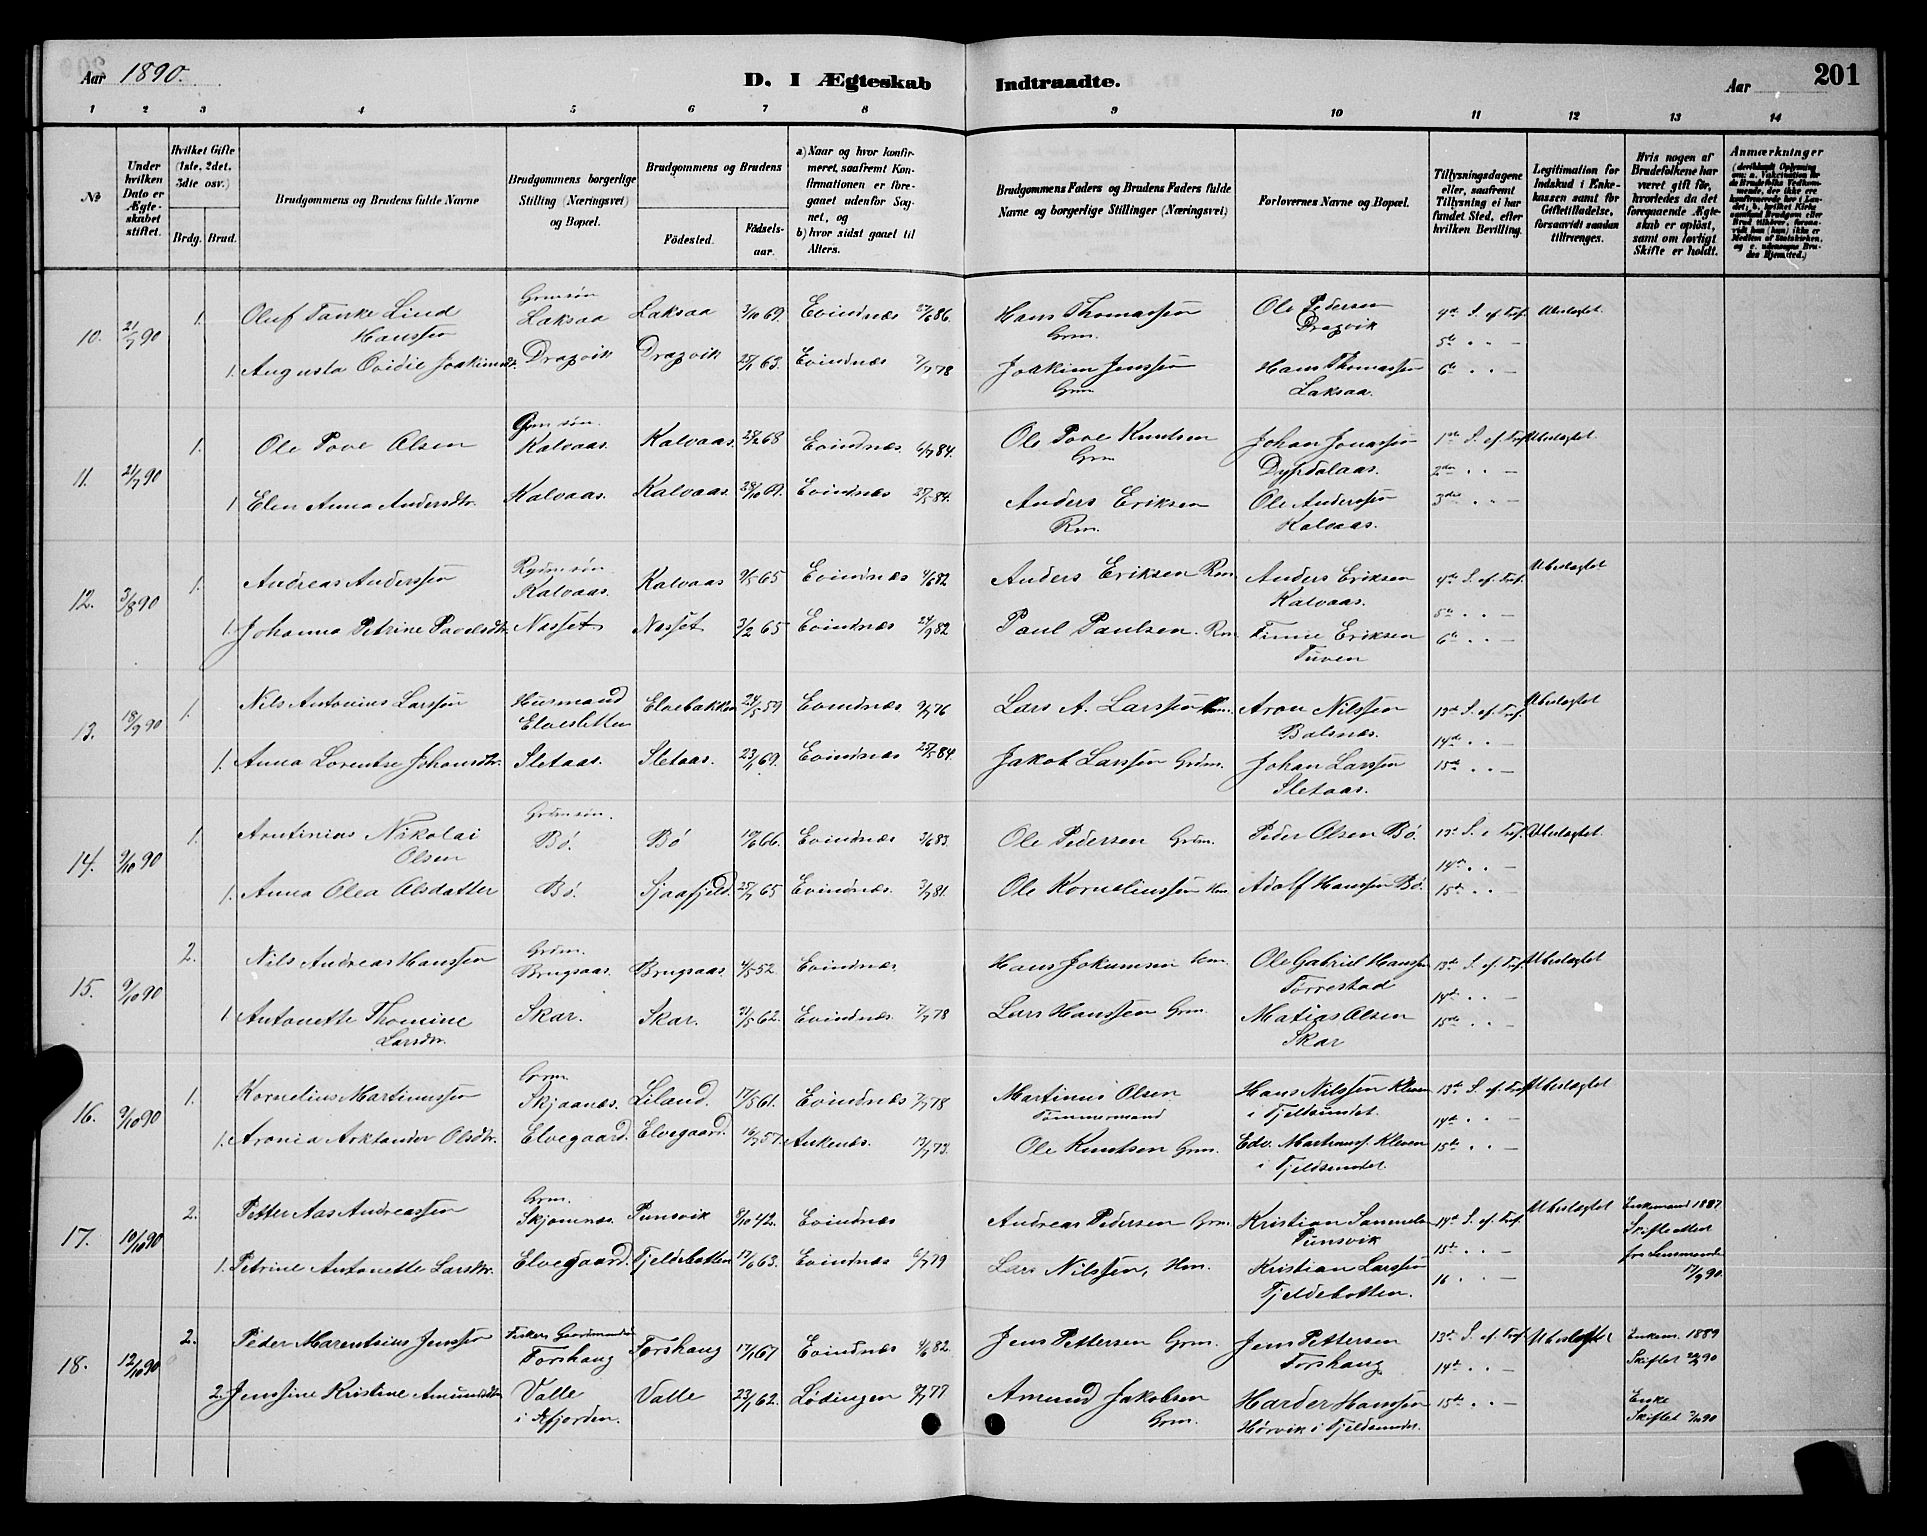 Aar 1890.
D. I Ægteskab Indtraadte.
Aar
201
1 2 3 4 5 6 7 8 9 10 11 12 13 14
No
Under hvilken Dato er Ægteskabet stiftet.
Hvilket Gifte (1ste, 2det, 3die osv.)
Brdg. Brud.
Brudgommens og Brudens fulde Navne
Brudgommens borgerlige Stilling (Næringsvei) og Bopæl.
Brudgommens og Brudens
Fødested. Fødselsaar.
a) Naar og hvor konfirmeret, saafremt Konfirmationen er foregaaet udenfor Sognet, og
b) hvor sidst gaaet til Alters.
Brudgommens Faders og Brudens Faders fulde Navne og borgerlige Stillinger (Næringsvei)
Forlovernes Navne og Bopæl.
Tillysningsdagene eller, saafremt Tillysning ei har fundet Sted, efter hvilken Bevilling.
Legitimation for Indskud i Enkekassen samt for Giftetilladelse, forsaavidt saadan tiltrænges.
Hvis nogen af Brudefolkene har været gift før, hvorledes da det foregaaende Ægteskab er opløst, samt om lovligt Skifte er holdt.
Anmærkninger
10. 21/7 90 1. Oluf Tanke Lind Hanssen Grmsøn Laksaa Laksaa 3/10 69. Evindnæs 27/6 86. Hans Thomassen Grm. Ole Pedersen Dragvik 4de S. ef. Tref. Ubeslegtet
5te " " —
1. Augusta Ovidie Joakimsdtr. Dragvik Dragvik 25/1 63. Evindnæs 7/7 78 Joakim Jenssen Grm. Hans Thomassen Laksaa. 6te " " —
11. 21/7 90 1. Ole Tove Olsen Grmsøn. Kalvaas. Kalvaas. 25/2 68 Evindnæs. 6/7 84. Ole Tove Knutsen Grm Johan Jonassen Dypdalaas. 1ste S. ef. Tref. Ubeslegtet.
2den " " —
1 Elen Anna Andersdtr. Kalvaas. Kalvaas. 28/10 69. Evindnæs 25/5 84. Anders Eriksen Rm. Ole Anderssen Kalvaas. 3die " " —
12. 3/8 90 1. Andreas Anderssen Rydmsøn Kalvaas. Kalvaas 9/5 65 Evindnæs 4/6 82 Anders Eriksen Rm. Anders Eriksen Kalvaas. 4de S. ef. Tref. Ubeslegtet
5te " " —
1. Johanna Petrine Pavelsdtr. Nasset Nasset 3/2 65 Evindnæs 24/9 82 Paul Paulsen. Rm Finne Eriksen Tuven 6te " " —
13. 18/9 90 1. Nils Antonius Larssen Husmand Elvesletten Elvebakken 24/5 59 Evindnæs 9/7 76 Lars A. Larssen Hm. Aron Nilssen Balsnæs. 13de S. ef. Tref. Ubeslegtet
14de " " —
1. Anna Lorentse Johansdtr. Sletaas. Sletaas. 23/1 69. Evindnæs 25/5 84. Jakob Larssen Grdm. Johan Larssen Sletaas. 15de " " —
14. 9/10 90 1. Arntinius Nikolai Olsen Grdmsøn. Bø. Bø 10/6 66. Evindnæs 3/6 83. Ole Pedersen Grdm. Peder Olsen Bø. 13de S. e Tref. Ubeslegtet.
14de " " —
1. Anna Olea Olsdatter Bø. Sjaafjeld. 25/1 65 Evindnæs. 3/7 81. Ole Korneliussen Hm. Adolf Hanssen Bø. 15de " " —
15. 9/10 90 2. Nils Andreas Hanssen Grdm. Brugsaas. Brugsaas. 4/5 52. Evindnæs. Hans Jokumsen Hm. Ole Gabriel Hanssen Tørrestad 13de S. ef. Tref. Ubeslegtet
14de " " —
1. Antonette Thomine Larsdtr. Skar. Skar. 21/5 62. Evindnæs. 7/7 78 Lars Hanssen Grm. Matias Olsen Skar 15de " " —
16. 9/10 90 1. Kornelius Martinussen Grm. Skjaanæs. Liland. 17/5 61. Evindnæs 7/7 78 Martinus Olsen Tømmermand Hans Nilssen Kleven i Fjeldsundet. 13de S. ef. Tref. Ubeslegtet
14de " " —
1. Aronea Arklander Olsdtr. Elvegaard. Elvegaard. 16/7 57. Ankenæs. 13/7 73. Ole Knutsen Grm. Edv. Martinuss. Kleven i Fjeldsundet. 15de " " —
17. 10/10 90 2. Petter Aas Andreassen Grm. Skjomnæs. Punsvik 8/10 42. Evindnæs Andreas Pedersen Grm. Kristian Samuels. Punsvik 14de S. ef. Tref. Ubeslegtet Enkemand 1887 Skifte Attest fra Lensmanden 17/9 90.
15de " " —
1. Petrine Antonette Larsdtr. Elvegaard. Fjeldebotten 17/6 63. Evindnæs 6/7 79 Lars Nilssen, Hm. Kristian Larssen Fjeldebotten. 16 " " —
18. 12/10 90 2. Peder Marentsius Jenssen Fisker Gaardmands. Forshaug Forshaug 17/1 67 Evindnæs 4/6 82. Jens Pettersen Grm. Jens Pettersen Forshaug 13de S. ef. Tref. Ubeslegtet Enkem. 1889 Skiftet 22/9 90
14de " " —
2. Jenssine Kristine Amundsdtr. Valle i Efjorden. Valle 23/1 62. Lødingen 8/7 77 Amund Jakobsen Grm. Harder Hanssen Hørvik i Fjeldsundet. 15de " " — Enke Skiftet 7/10 90